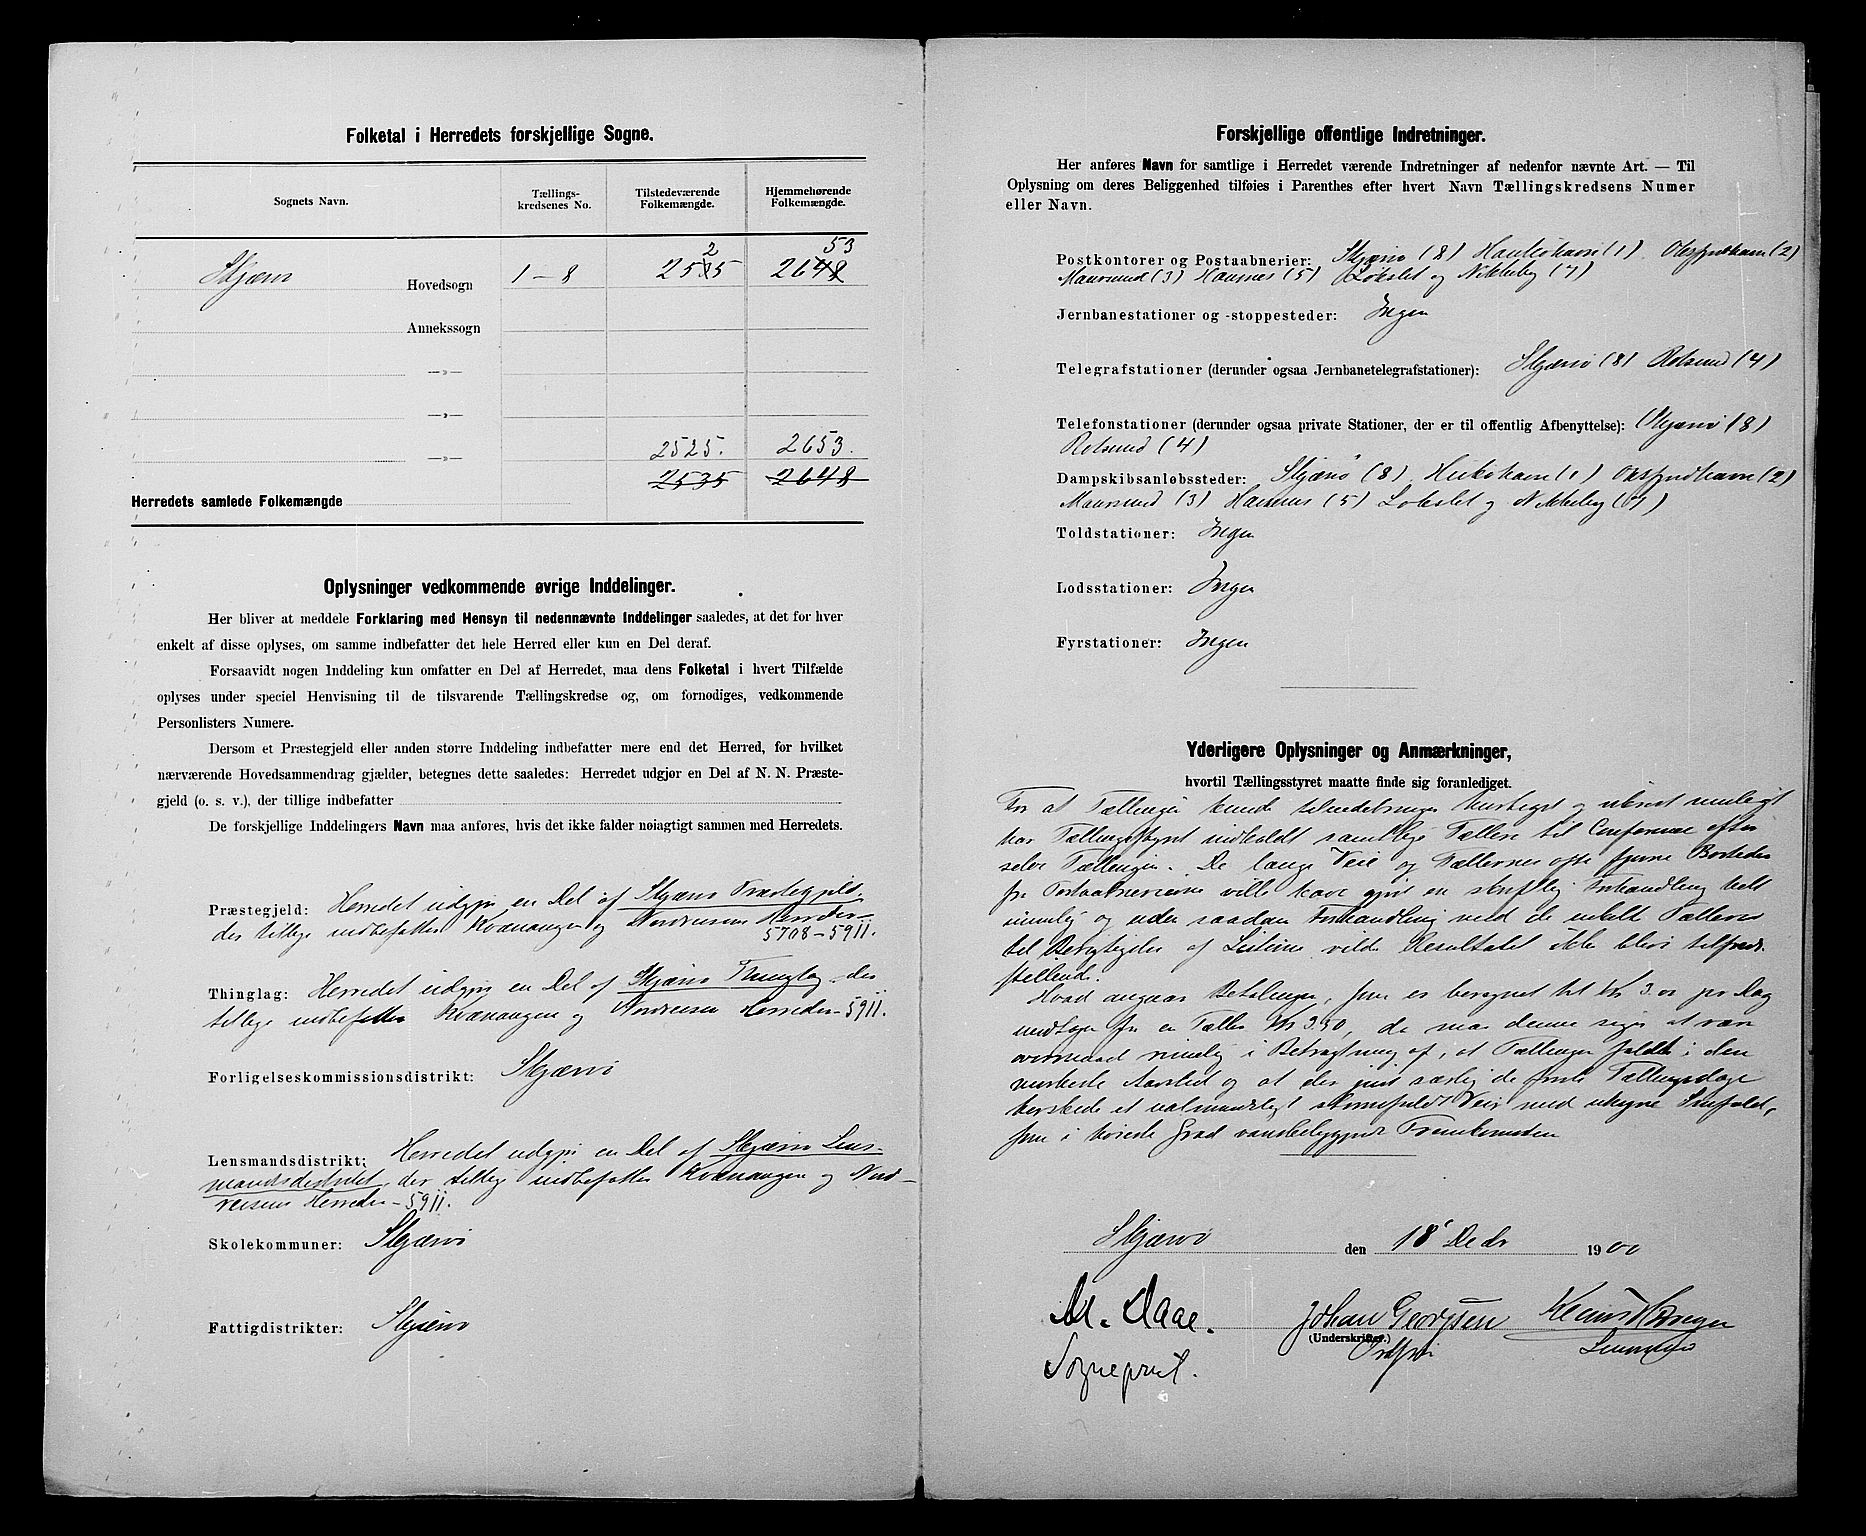 Folketal i Herredets forskjellige Sogne.
Sognets Navn.
Tællings-
kredsenes No.
Tilstedeværende
Folkemængde.
Hjemmehørende
Folkemængde.
Skjærvø Hovedsogn 1-8 2525 2653
Annekssogn
—»—
—»—
—»— 2525. 2653.
2535 2648
Herredets samlede Folkemængde
Oplysninger vedkommende øvrige Inddelinger.
Her bliver at meddele Forklaring med Hensyn til nedennævnte Inddelinger saaledes, at det for hver
enkelt af disse oplyses, om samme indbefatter det hele Herred eller kun en Del deraf.
Forsaavidt nogen Inddeling kun omfatter en Del af Herredet, maa dens Folketal i hvert Tilfælde
oplyses under speciel Henvisning til de tilsvarende Tællingskredse og, om fornødiges, vedkommende
Personlisters Numere.
Dersom et Præstegjeld eller anden større Inddeling indbefatter mere end det Herred, for hvilket
nærværende Hovedsammendrag gjælder, betegnes dette saaledes: Herredet udgjør en Del af N. N. Præste-
gjeld (o. s. v.), der tillige indbefatter
De forskjellige Inddelingers Navn maa anføres, hvis det ikke falder nøiagtigt sammen med Herredets.
Præstegjeld: Herredet udgjør en Del af Skjærvø Præstegjeld.
der tillige indbefatter Kvænangen og Nordreisens Herreder-
5708-5911.
Thinglag: Herredet udgjør en Del af Skjærvø Thinglag der
tillige indbefatter Kvænangen og Nordreisen Herreder-5911.
Forligelseskommissionsdistrikt: Skjærvø
Lensmandsdistrikt: Herredet udgjør en Del af Skjærvø Lens-
mandsdistrikt, der tillige indbefatter Kvænangen og Nord-
reisens Herreder-5911.
Skolekommuner: Skjærvø
Fattigdistrikter: Skjærvø
Forskjellige offentlige Indretninger.
Her anføres Navn for samtlige i Herredet værende Indretninger af nedenfor nævnte Art. — Til
Oplysning om deres Beliggenhed tilføies i Parenthes efter hvert Navn Tællingskredsens Numer
eller Navn.
Postkontorer og Postaabnerier: Skjærvø (8) Haukøhavn (1) Oksfjordhavn (2)
Maursund (3) Hamnes (5) Løkslet og Nikkeby (7)
Jernbanestationer og -stoppesteder: Ingen
Telegrafstationer (derunder ogsaa Jernbanetelegrafstationer): Skjærvø (8) Rotsund (4)
Telefonstationer (derunder ogsaa private Stationer, der er til offentlig Afbenyttelse): Skjærvø (8)
Rotsund (4)
Dampskibsanløbssteder: Skjærvø (8) Haukøhavn (1) Oksfjordhavn (2)
Maursund (3) Hamnes (5) Løkslet og Nikkeby (7)
Toldstationer: Ingen
Lodsstationer: Ingen
Fyrstationer: Ingen
Yderligere Oplysninger og Anmærkninger,
hvortil Tællingsstyret maatte finde sig foranlediget.
For at Tællingen kunde tilendebringes hurtigst og sikrest muligt
har Tællingsstyret indkaldt samtlige Tællere til Conference efter
selve Tællingen. De lange Veie og Tællernes ofte fjerne Bosteder
fra Postaabnerierne ville have gjort en skriftlig Forhandling helt
umulig og uden saadan Forhandling med de enkelte Tællere
til Berigtigelse af Listerne vilde Resultatet ikke blevet tilfreds-
stillende.
Hvad angaar Betalingen, som er beregnet til Kr 3.00 pr Dag
undtagen for en Tæller Kr 3.50, da maa denne siges at være
overmaade rimelig i Betragtning af, at Tællingen faldt i den
mørkeste Aarstid og at der just særlig de første Tællingsdage
herskede et ualmindeligt stormfuldt Veir med megen Snefald,
som i høieste Grad vanskeliggjorde Fremkomsten
Skjærvø den 18' Decbr 1900
M. Aaae. Johan Georgsen
(Underskrifter.)
Sogneprest. Ordfører Lensmand